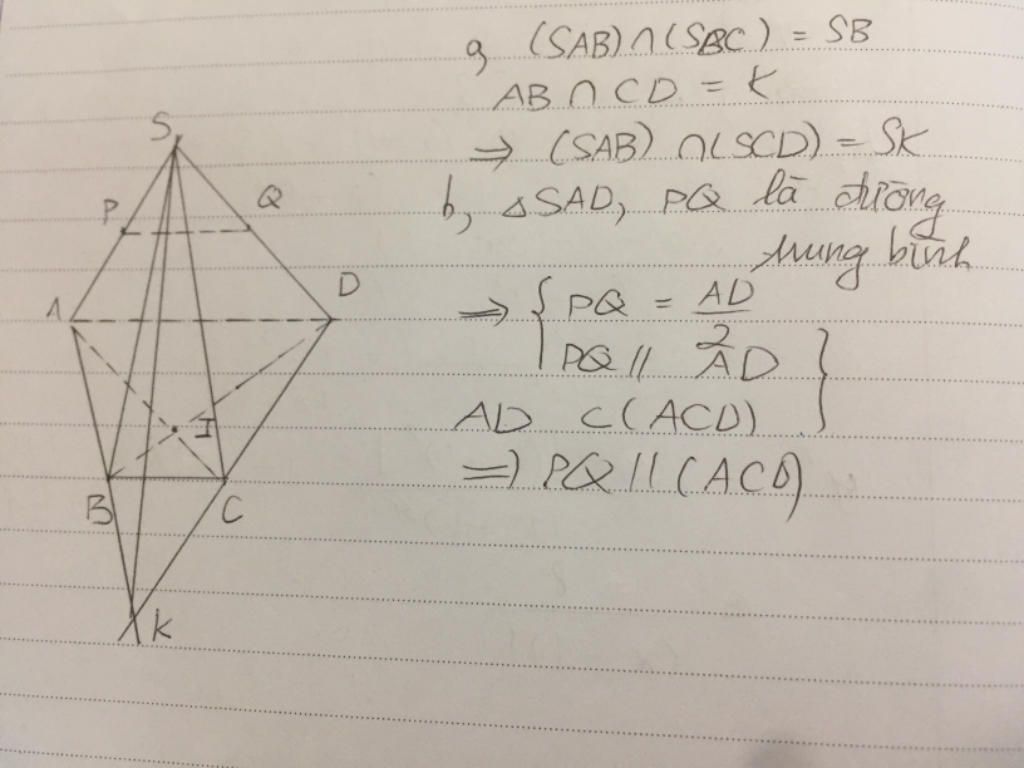 a, (SAB) ∩ (SBC) = SB
AB ∩ CD = K
⇒ (SAB) ∩ (SCD) = SK
b, △SAD, PQ là đường
trung bình
⇒ { PQ = AD/2
PQ // AD }
AD ⊂ (ACD)
⇒ PQ // (ACD)
S
P Q
A D
I
B C
K